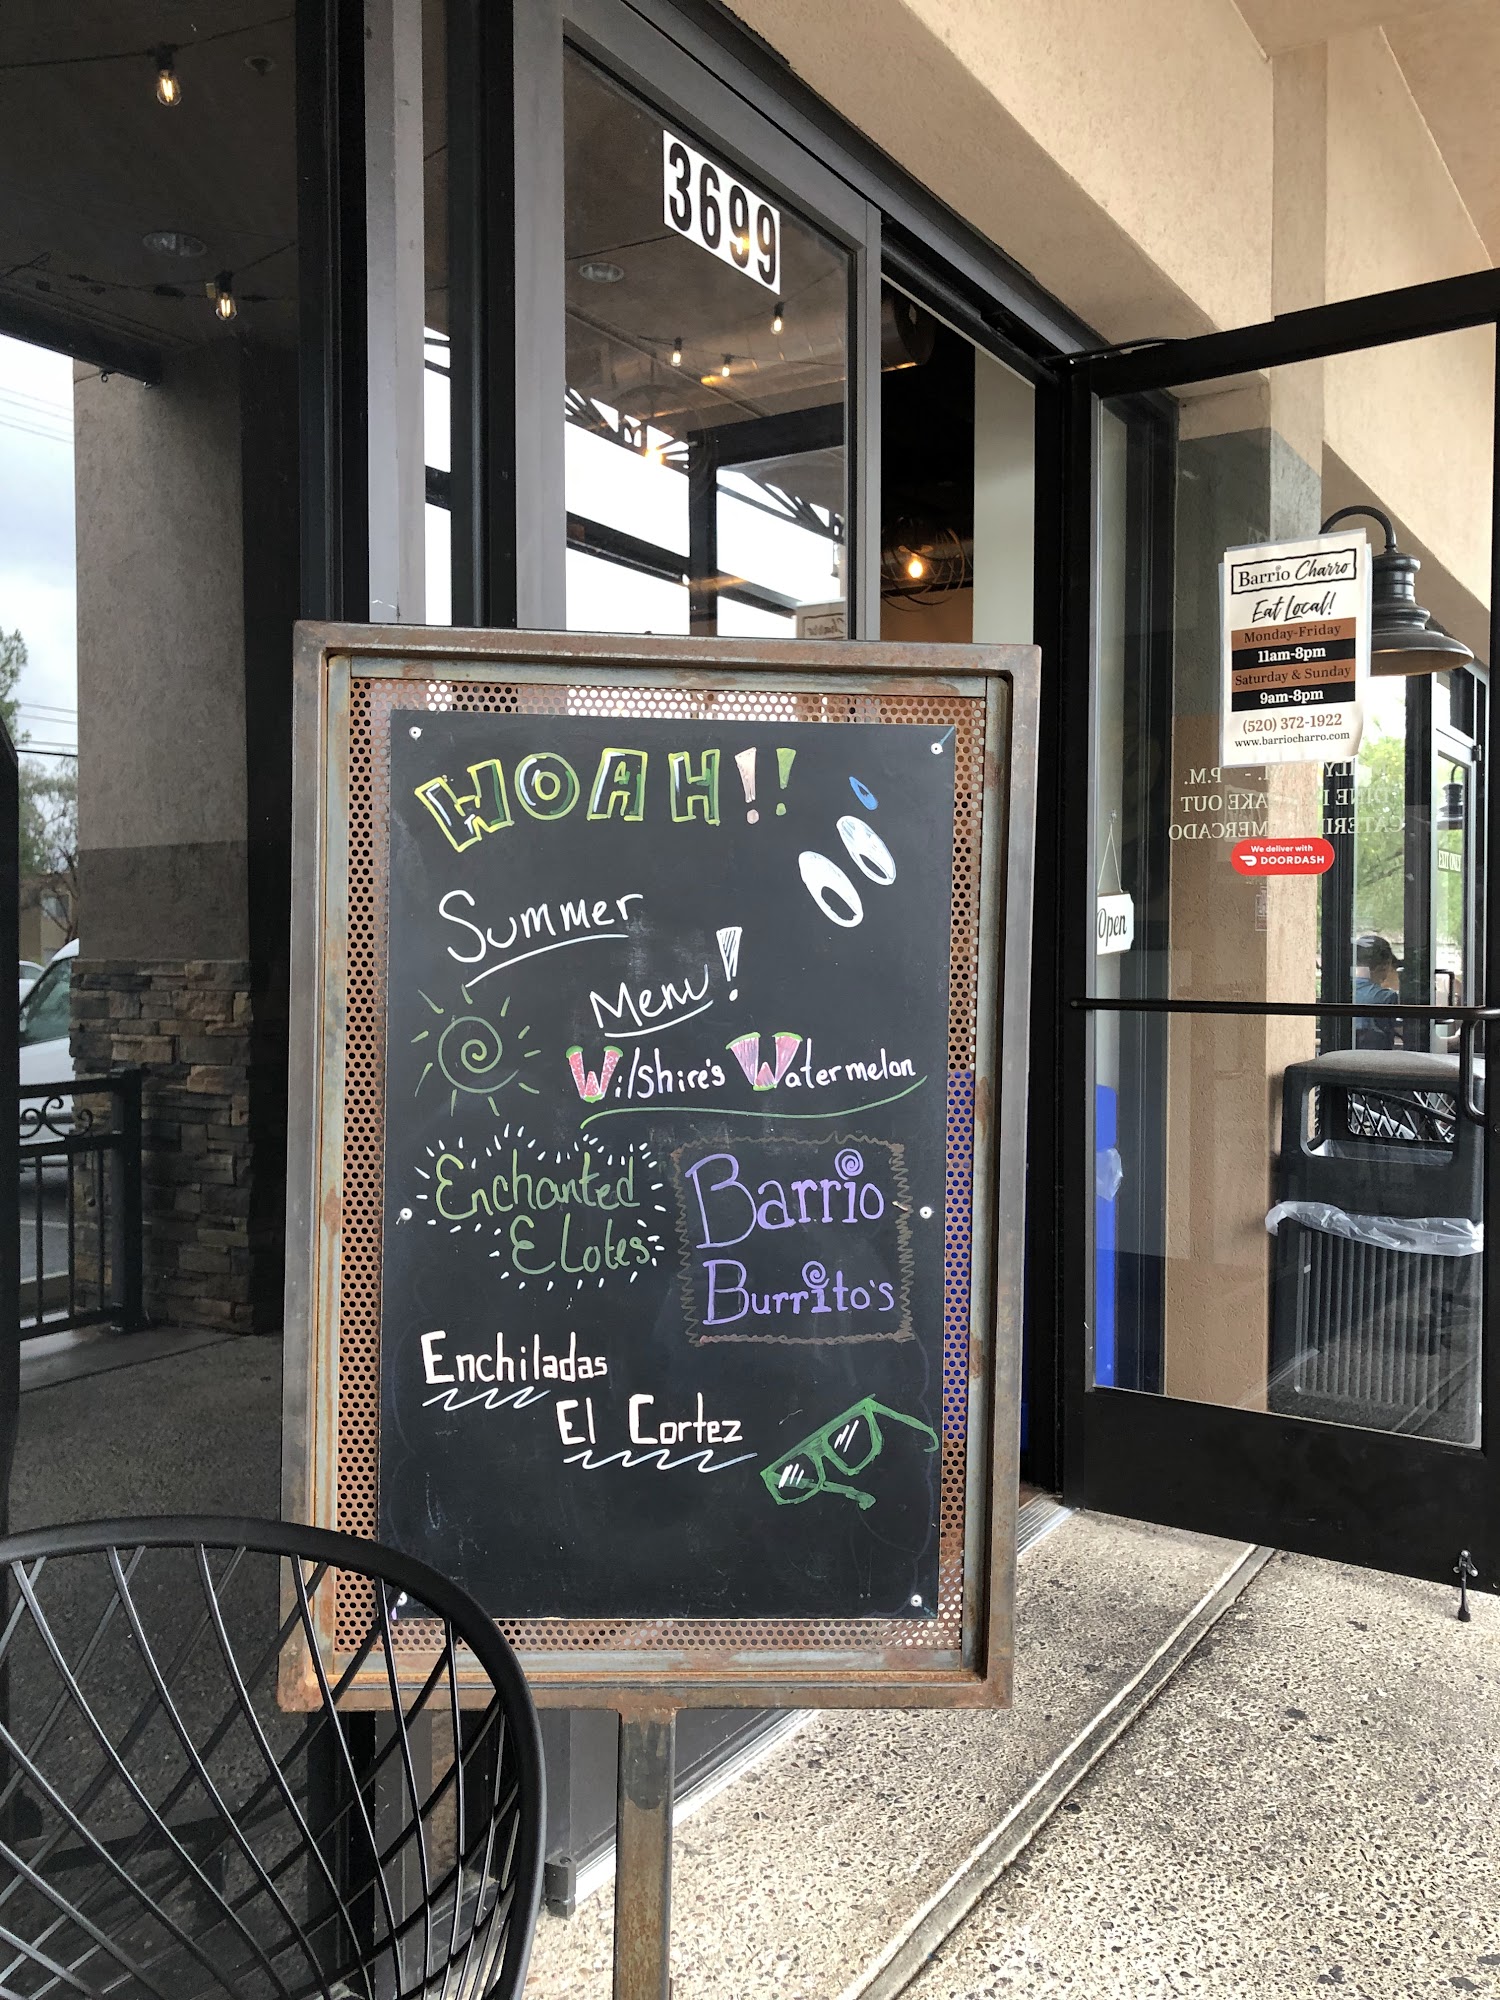 3699
WOAH!!
Summer
Menu!
Wilshire's Watermelon
Enchanted
Elotes
Barrio
Burrito's
Enchiladas
El Cortez
Barrio Charro
Eat Local!
Monday-Friday
11am-8pm
Saturday & Sunday
9am-8pm
(520) 372-1922
www.barriocharro.com
P.M.
DINE I
AKE OUT
CATERI
MERCADO
We deliver with
DOORDASH
Open